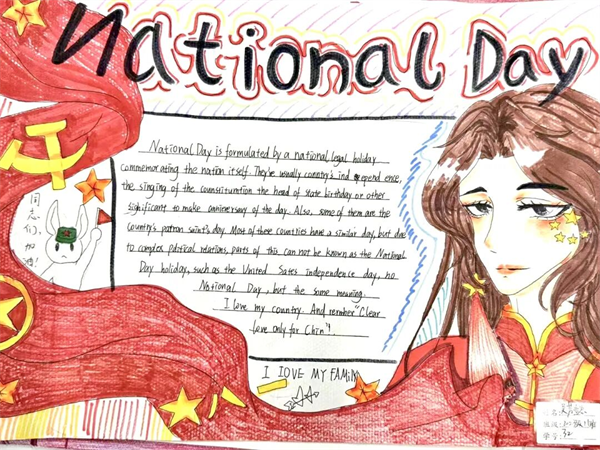 National Day
National Day is formulated by a national legal holiday
commemorating the nation itself. They're usually connry's ind epend ence,
the singing of the counstituration the head of state birthday or other
significant to make anniversary of the day. Also, some of them are the
Country's patron saint's day. Most of these countries have a similar day, but due
to complex political relations, parts of this can not be known as the National
Day holiday, such as the United Sates independence day, no
National Day, but the same meaning.
I love my country. And rember "Clear
love only for Chin"!
同志们,加油!
I lOVE MY FAMILY